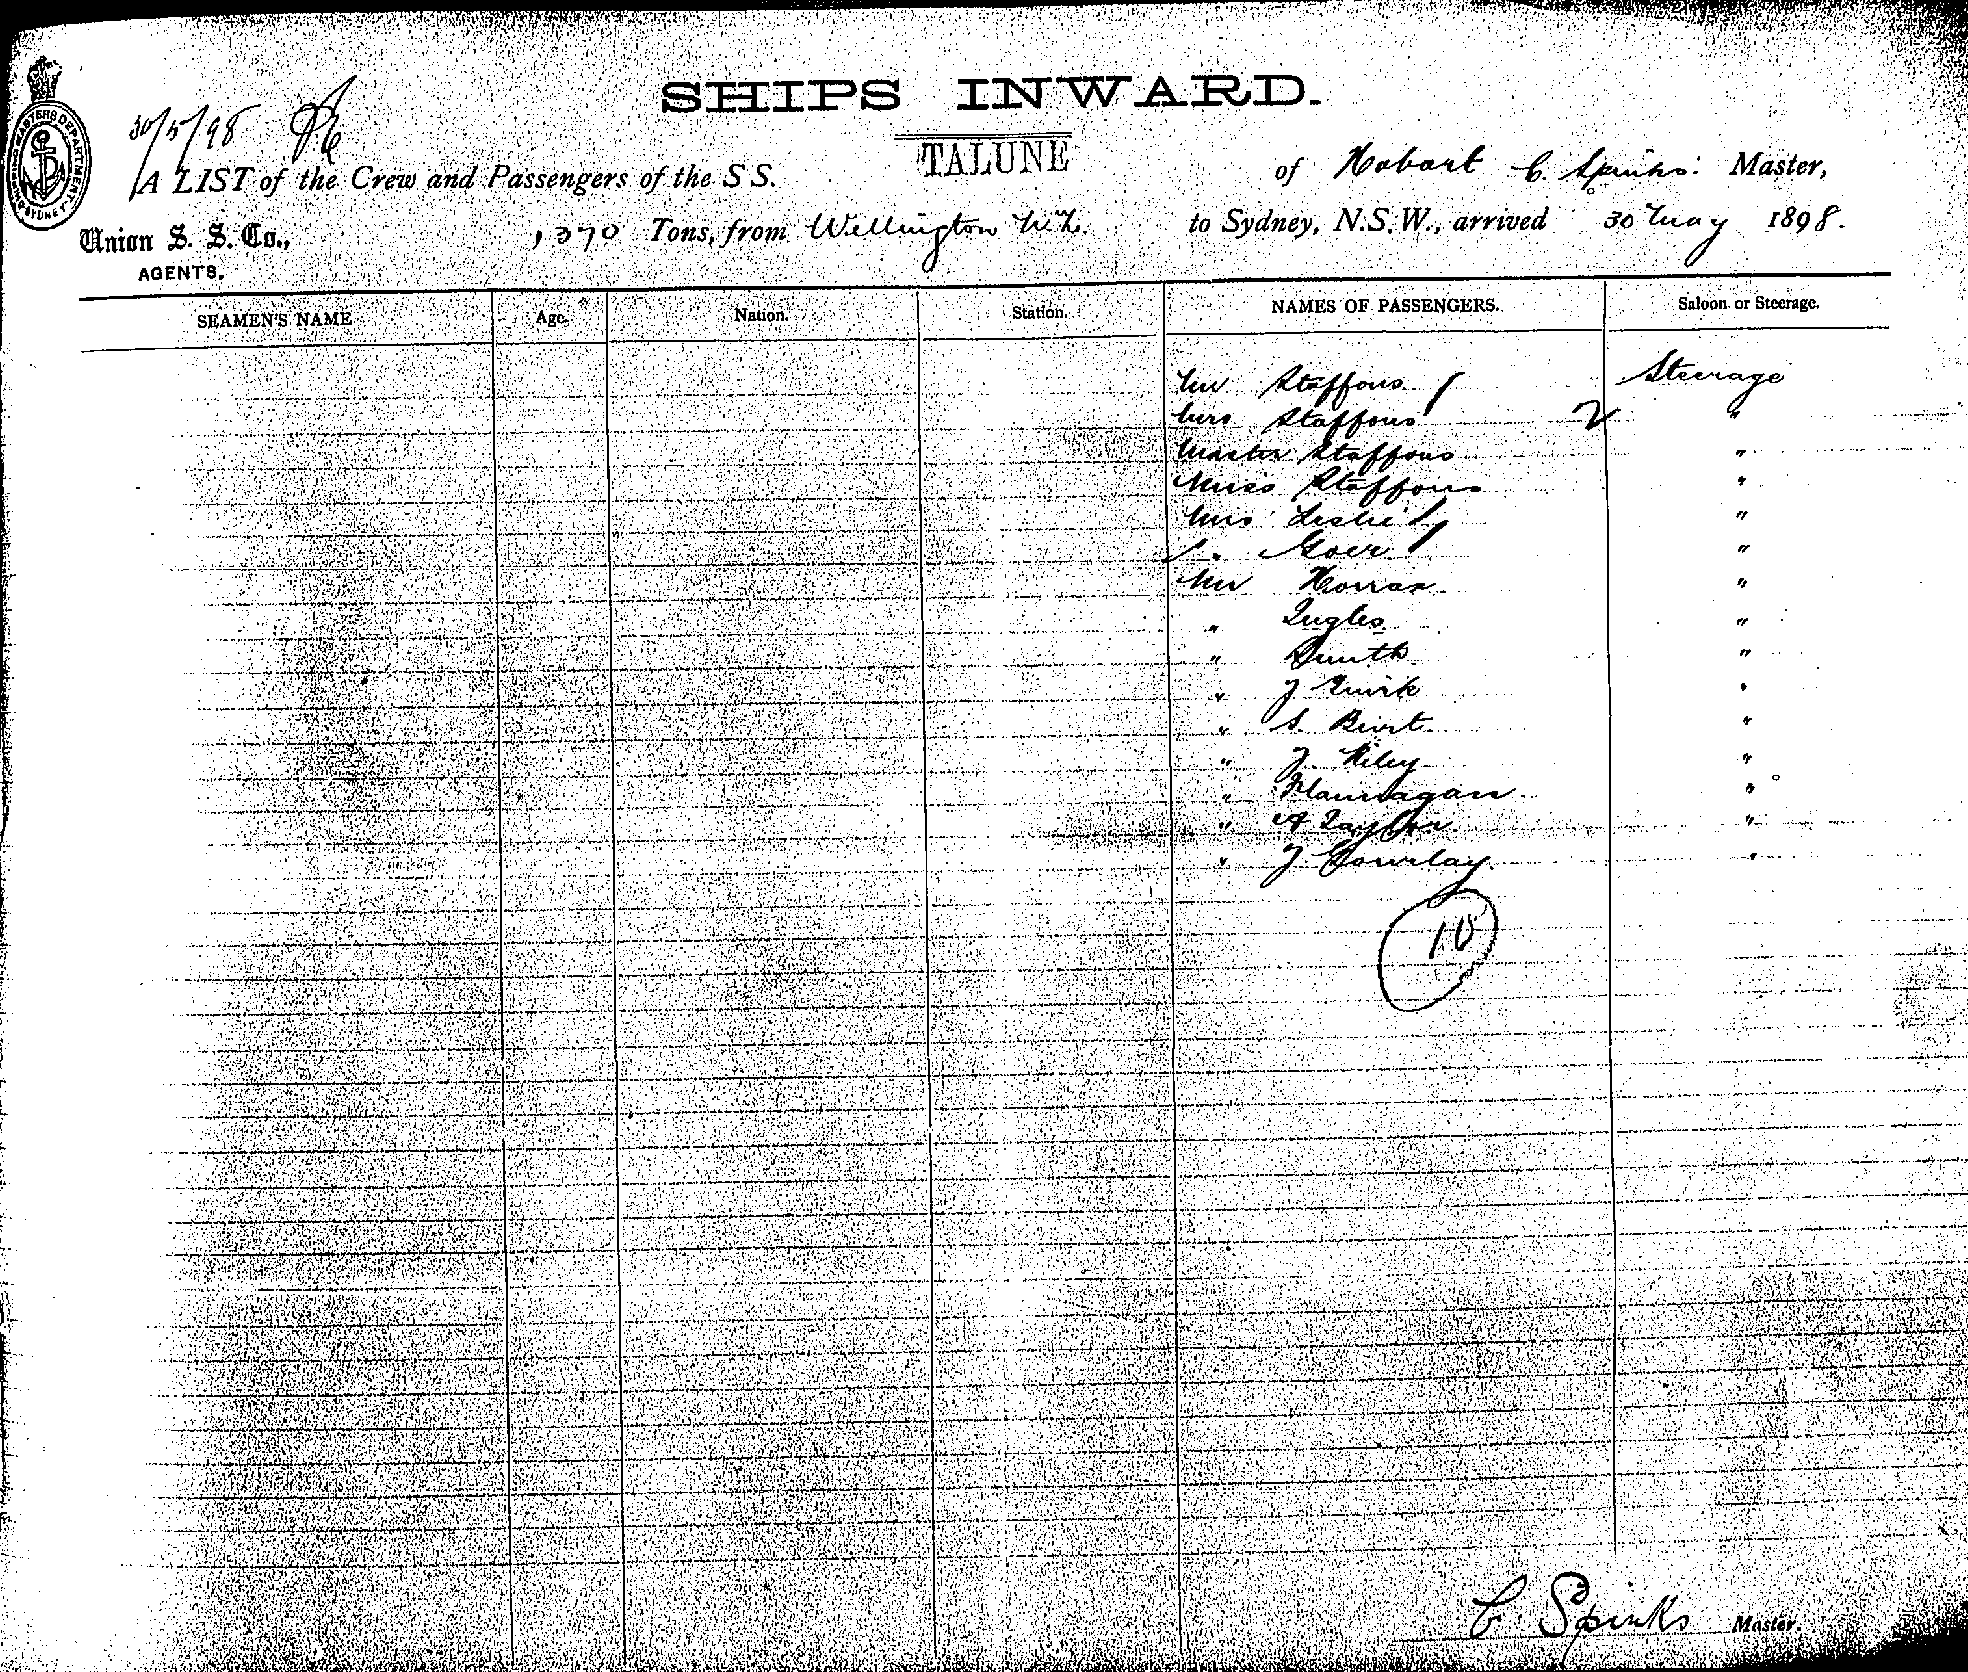 SHIPS INWARD.
30/5/98
A LIST of the Crew and Passengers of the S S. TALUNE of Hobart C. Spinks: Master,
Union S. S. Co., 1370 Tons, from Wellington N.Z. to Sydney, N.S.W., arrived 30 May 1898.
AGENTS.
SEAMEN'S NAME Age. Nation. Station. NAMES OF PASSENGERS. Saloon or Steerage.
Mr Staffons Steerage
Mrs Staffons 2 "
Master Staffons "
Miss Staffons "
Mrs Leslie "
" Goer "
Mr "
" Ingles "
" Smith "
" J Quirk "
" S. Burt "
" J. Riley "
" Flannagan "
" A Taylor "
" J. Gourlay "
C. Spinks Master.